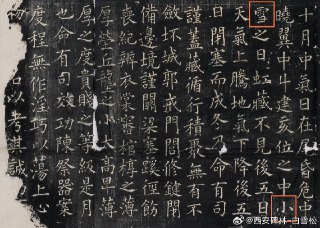 十月中氣日在尾昏危中
曉翼中斗建亥位之中小
雪之日虹藏不見後五日
天氣上騰地氣下降後五
日閉塞而成冬命有司
謹蓋藏循行積聚無有不
斂坏城郭戒門閭修鍵閉
備邊境謹關梁塞蹊徑飭
喪紀辨衣裳審棺椁之薄
厚塋丘壟之小大高卑薄
厚之度貴賤之等級是月
也命有司效功陳祭器案
度程無作淫巧以蕩上心
物以考其誠
@西安碑林-白雪松